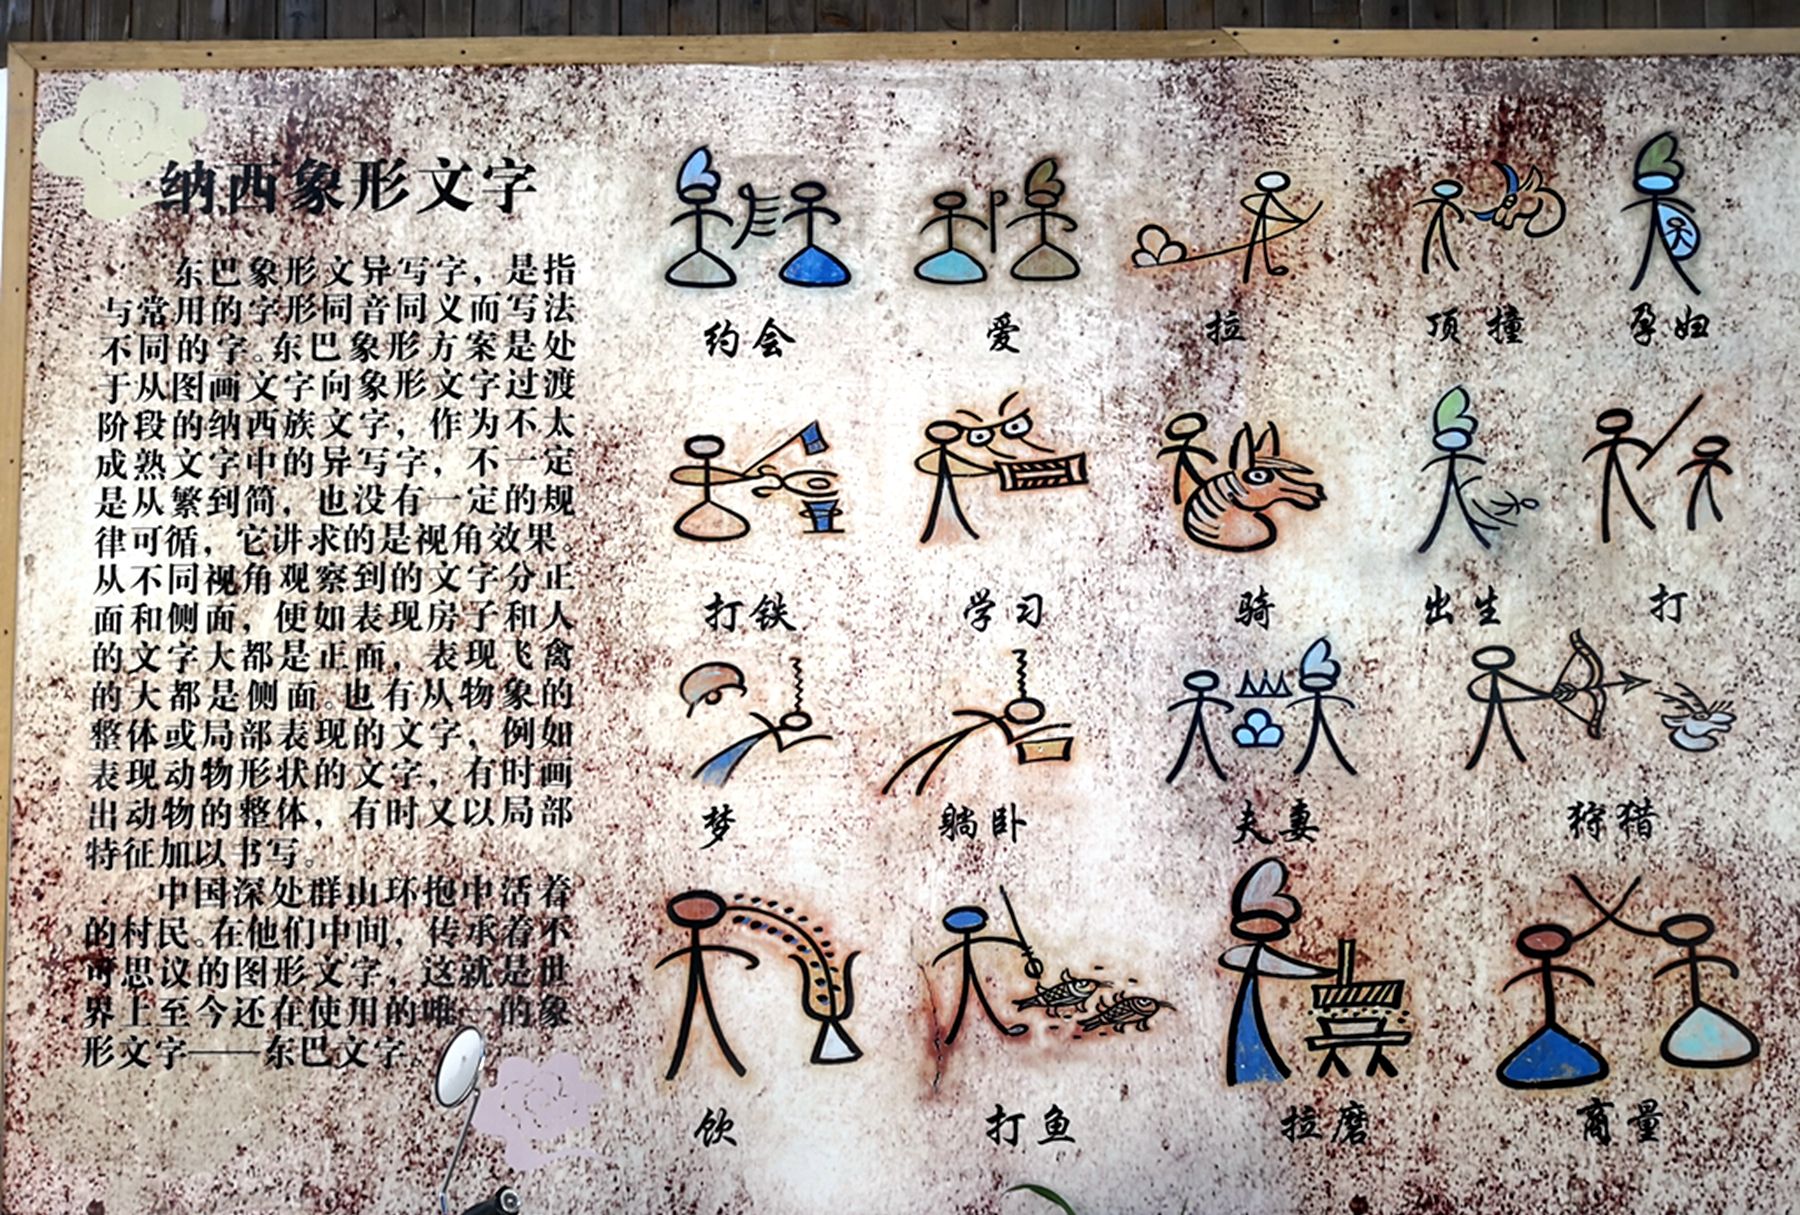 纳西象形文字
东巴象形文异写字，是指
与常用的字形同音同义而写法
不同的字。东巴象形方案是处
于从图画文字向象形文字过渡
阶段的纳西族文字，作为不太
成熟文字中的异写字，不一定
是从繁到简，也没有一定的规
律可循，它讲求的是视角效果。
从不同视角观察到的文字分正
面和侧面，便如表现房子和人
的文字大都是正面，表现飞禽
的大都是侧面。也有从物象的
整体或局部表现的文字，例如
表现动物形状的文字，有时画
出动物的整体，有时又以局部
特征加以书写。
中国深处群山环抱中活着
的村民。在他们中间，传承着不
可思议的图形文字，这就是世
界上至今还在使用的唯一的象
形文字——东巴文字。
约会 爱 拉 顶撞 孕妇
打铁 学习 骑 出生 打
梦 躺卧 夫妻 狩猎
饮 打鱼 拉磨 商量